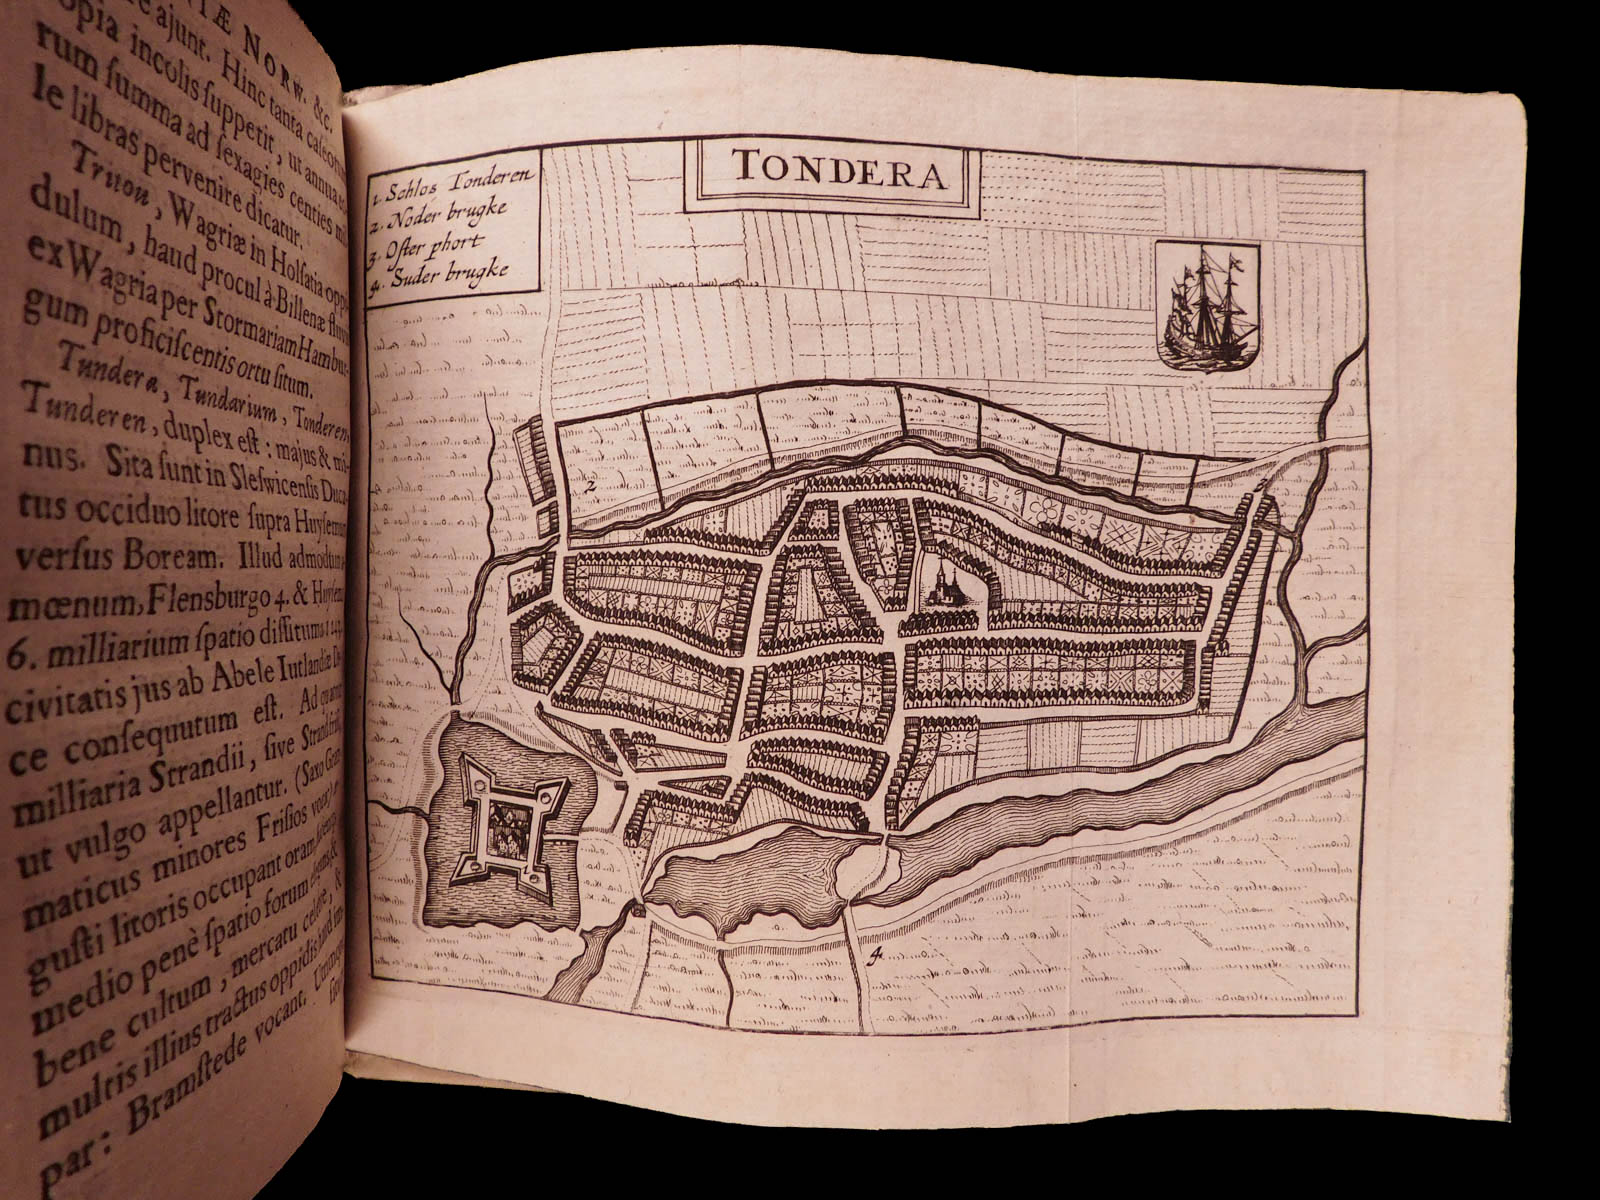 IÆ NORW. &c.
re ajunt. Hinc tanta caſeorum
opia incolis ſuppetit, ut annua
rum ſumma ad ſexagies centies mil
le libras pervenire dicatur.
Tritou, Wagriæ in Holſatia oppi-
dulum, haud procul à Billenæ fluvii
ex Wagria per Stormariam Hambur-
gum proficiſcentis ortu ſitum.
Tundera, Tundarium, Tonderen,
Tunderen, duplex eſt: majus & mi-
nus. Sita ſunt in Sleſwicenſis Duca-
tus occiduo litore ſupra Huyſemum
verſus Boream. Illud admodum a-
mœnum, Flensburgo 4. & Huyſemo
6. milliarium ſpatio diſſitum
civitatis jus ab Abele Jutlandiæ Du-
ce conſequutum eſt. Ad
milliaria Strandii, ſive Strandfriſii,
ut vulgo appellantur. (Saxo Gram-
maticus minores Friſios vocat)
guſti litoris occupant oram,
medio penè ſpatio forum
bene cultum, mercatu celebre, &
multis illius tractus oppidis haud
par: Bramſtede vocant.
TONDERA
1. Schlos Tonderen
2. Noder brugke
3. Oſter phort
4. Suder brugke
2
3
4